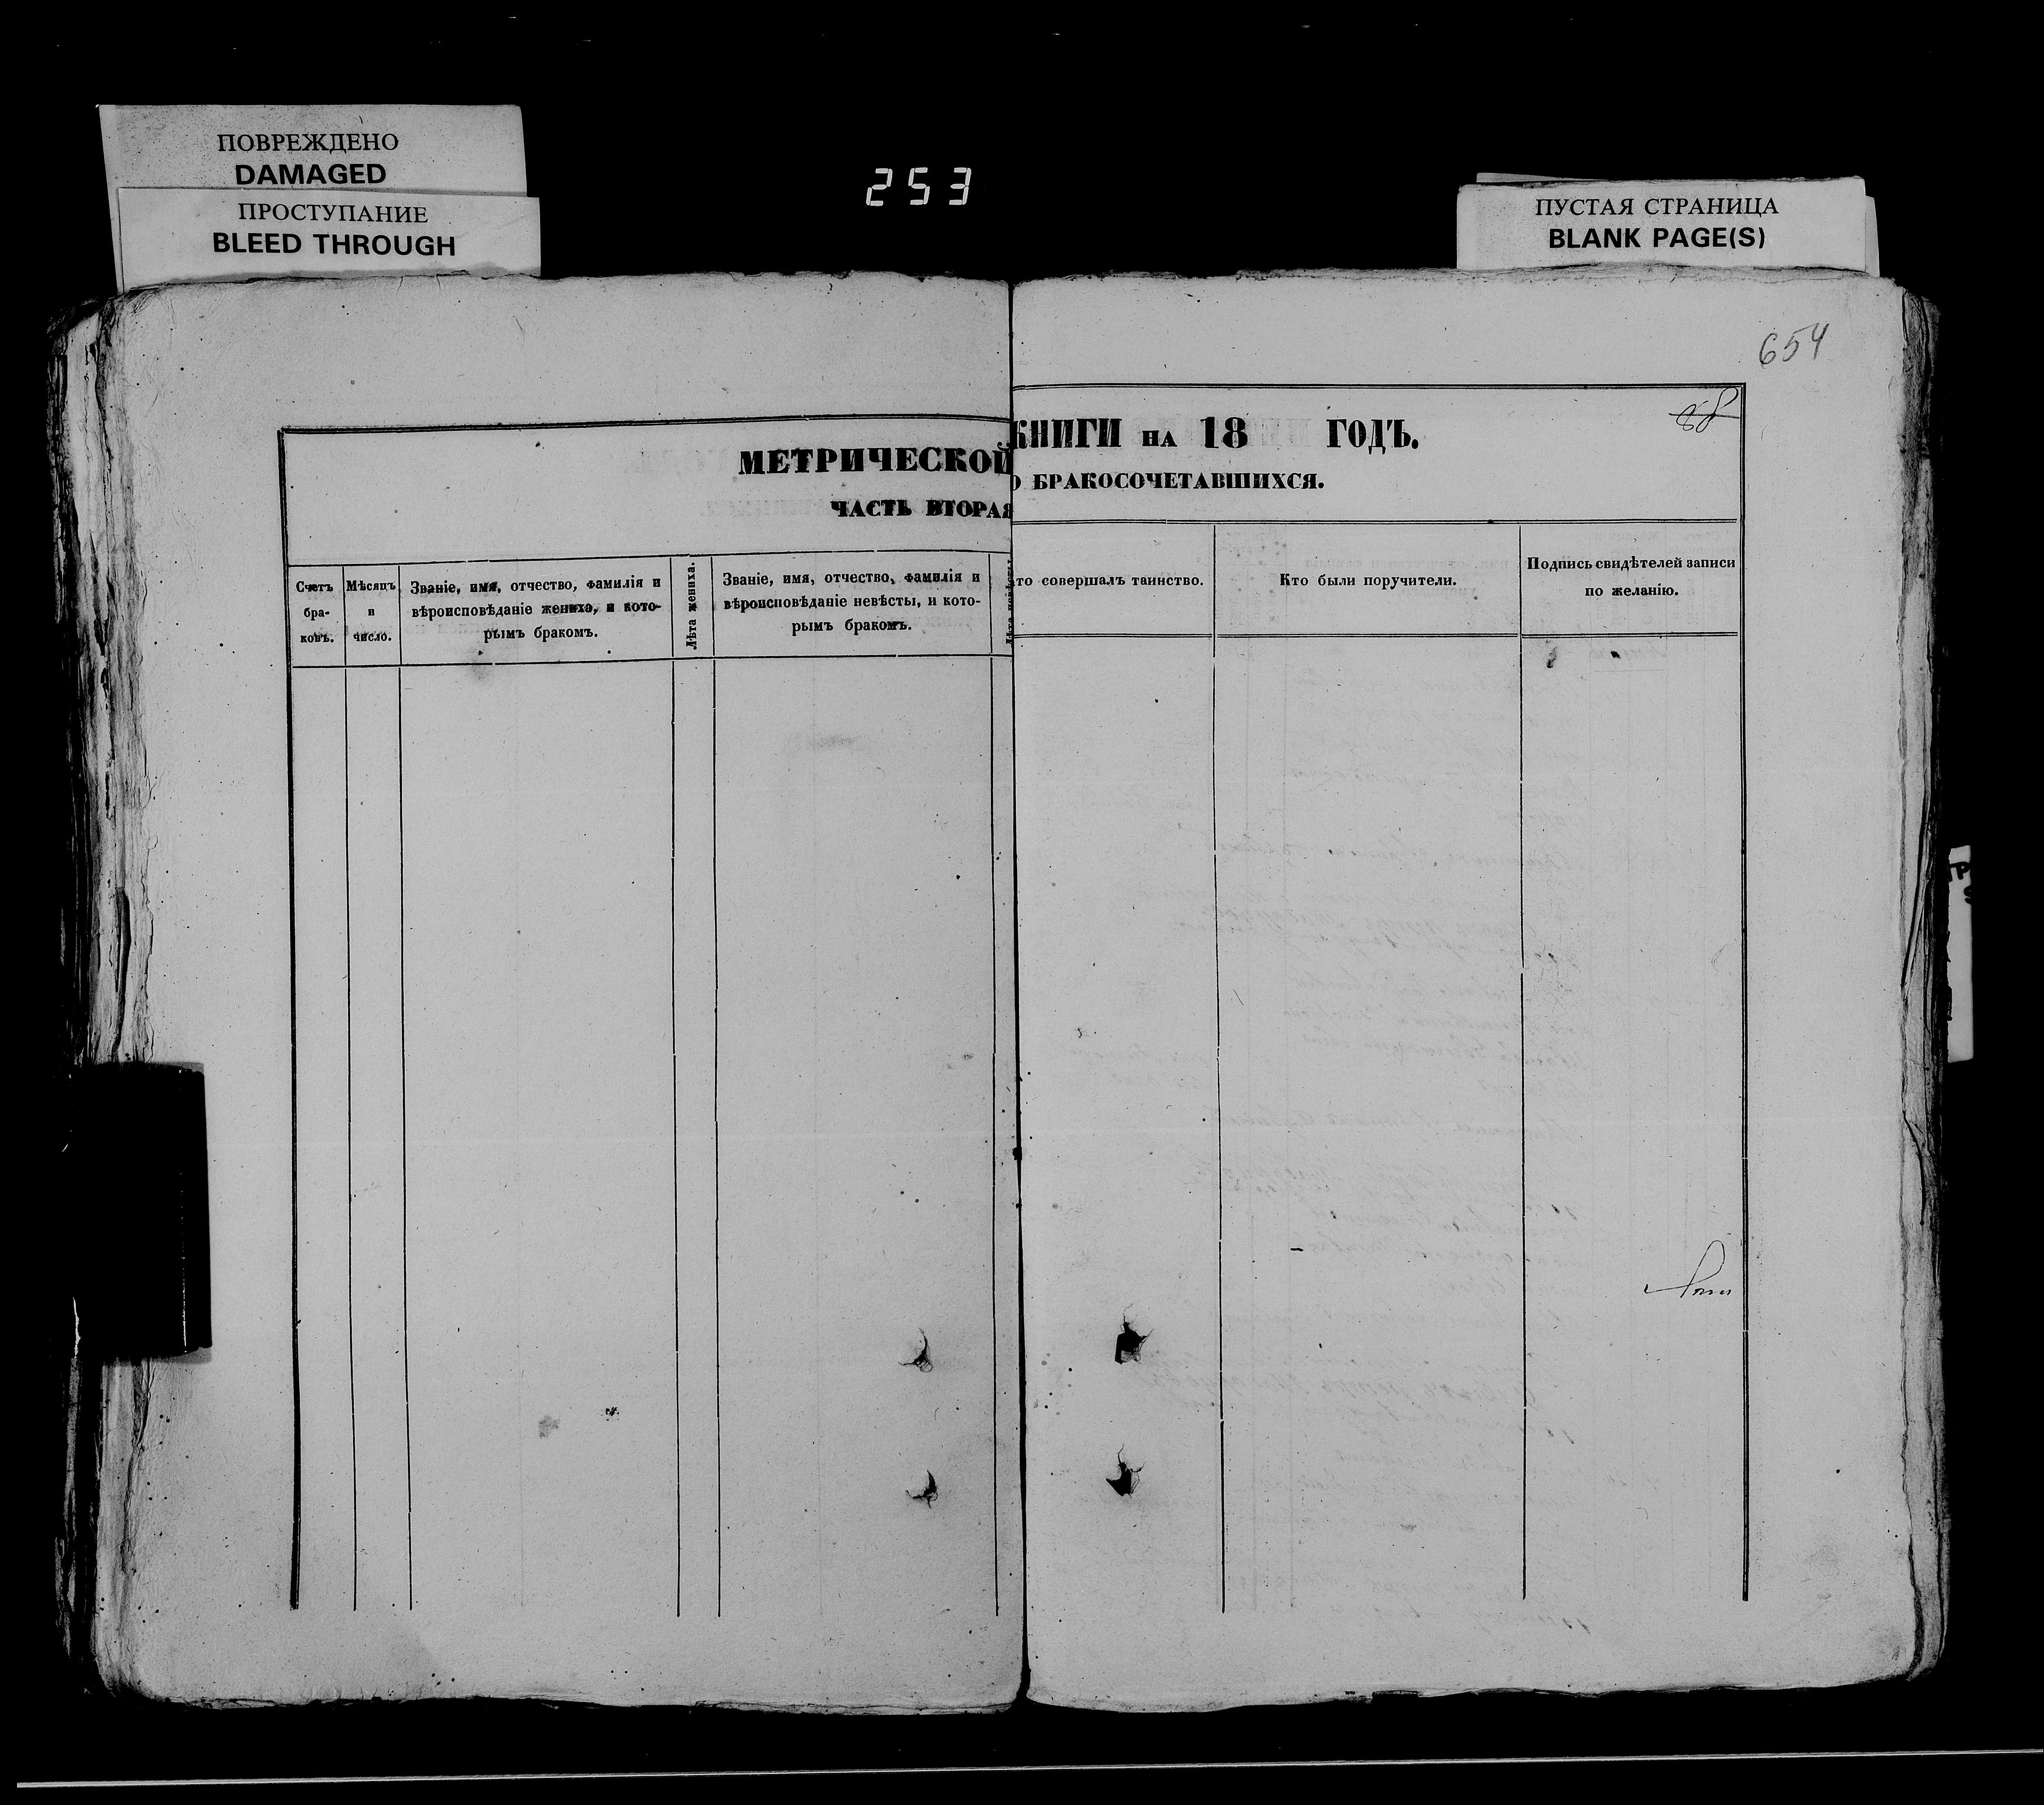 ПОВРЕЖДЕНО
DAMAGED
ПРОСТУПАНИЕ
BLEED THROUGH
253
ПУСТАЯ СТРАНИЦА
BLANK PAGE(S)
654
МЕТРИЧЕСКОЙ
ЧАСТЬ ВТОРАЯ
Счетъ
бра-
ковъ.
Мѣсяцъ
и
число.
Званіе, имя, отчество, фамилія и
вѣроисповѣданіе жениха, и кото-
рымъ бракомъ.
Лѣта жениха.
Званіе, имя, отчество, фамилія и
вѣроисповѣданіе невѣсты, и кото-
рымъ бракомъ.
КНИГИ НА 18 ГОДЪ.
О БРАКОСОЧЕТАВШИХСЯ.
то совершалъ таинство.
Кто были поручители.
Подпись свидѣтелей записи
по желанію.